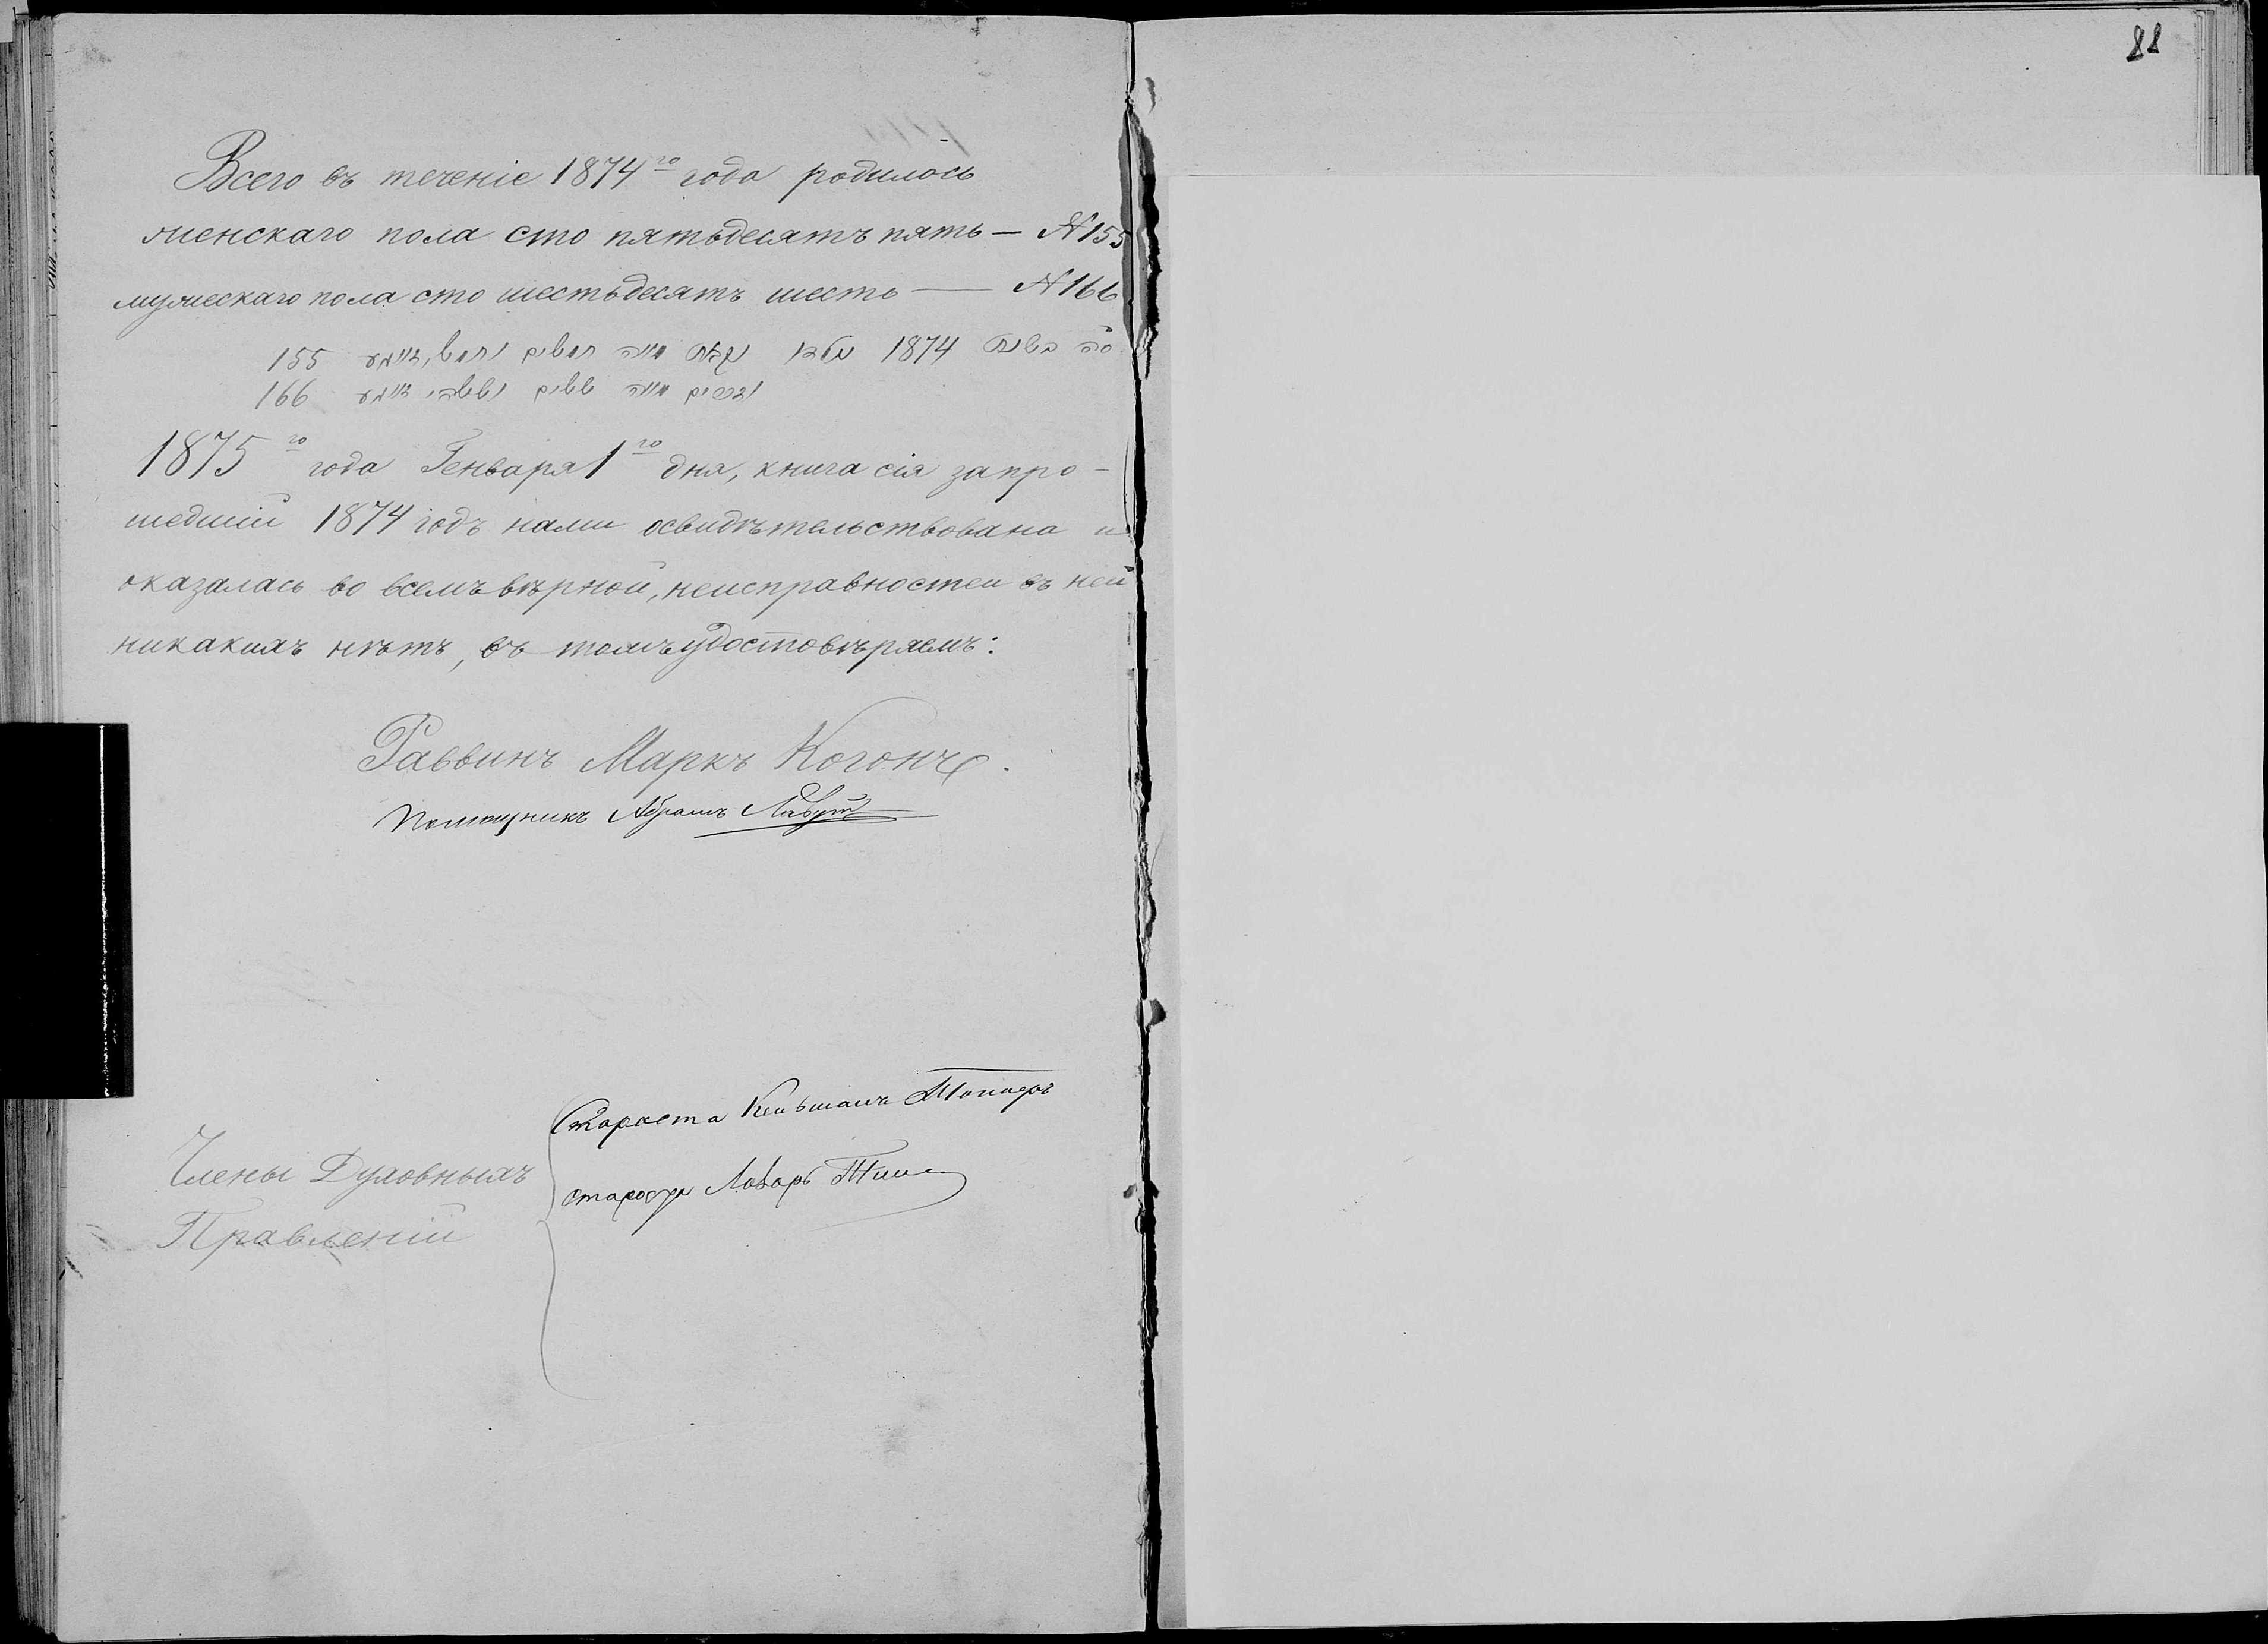 88
Всего въ теченіе 1874го года родилось
женскаго пола сто пятьдесятъ пять — № 155
мужескаго пола сто шестьдесятъ шесть — № 166
סה״כ בשנת 1874 נולדו נקבות מאה חמשים וחמש, נומער 155
וזכרים מאה ששים וששה, נומער 166
1875го года Генваря 1го дня, книга сія за про-
шедшій 1874 годъ нами освидѣтельствована и
оказалась во всемъ вѣрной, неисправностей въ ней
никакихъ нѣтъ, въ томъ удостовѣряемъ:
Раввинъ Маркъ Когонъ.
Помощникъ Абрамъ Лавутъ
Члены Духовныхъ
Правленій
Староста
староста Лазарь